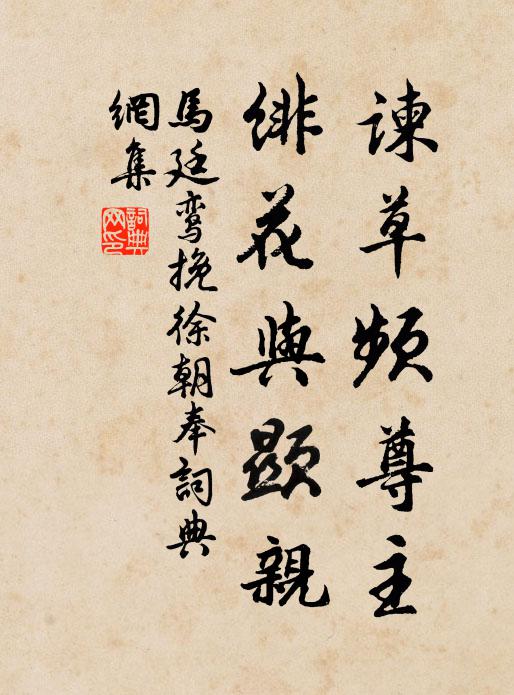 諫草頻尊主
緋花與顯親
馬廷鸾挽徐朝奉詞典
網集
詞典
网印